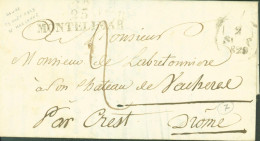 25
MONTELIMAR
A Monsieur
Monsieur de Labretonniere
à son chateau de Vacheres
Par Crest Drome